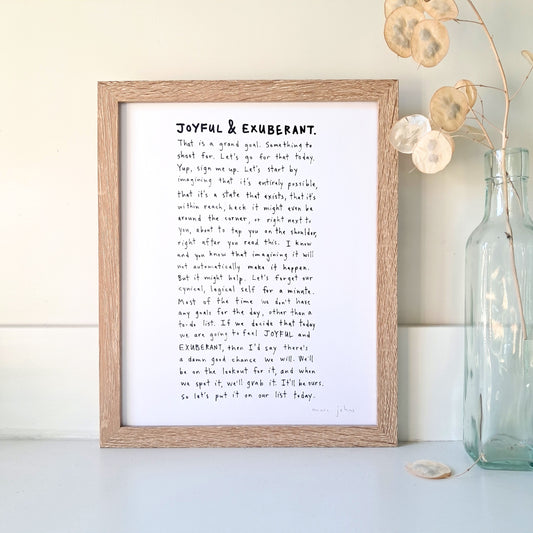 JOYFUL & EXUBERANT.
That is a grand goal. Something to
shoot for. Let's go for that today.
Yup, sign me up. Let's start by
imagining that it's entirely possible,
that it's a state that exists, that it's
within reach, heck it might even be
around the corner, or right next to
you, about to tap you on the shoulder,
right after you read this. I know
and you know that imagining it will
not automatically make it happen.
But it might help. Let's forget our
cynical, logical self for a minute.
Most of the time we don't have
any goals for the day, other than a
to-do list. If we decide that today
we are going to feel JOYFUL and
EXUBERANT, then I'd say there's
a damn good chance we will. We'll
be on the lookout for it, and when
we spot it, we'll grab it. It'll be ours.
So let's put it on our list today.
marc johns